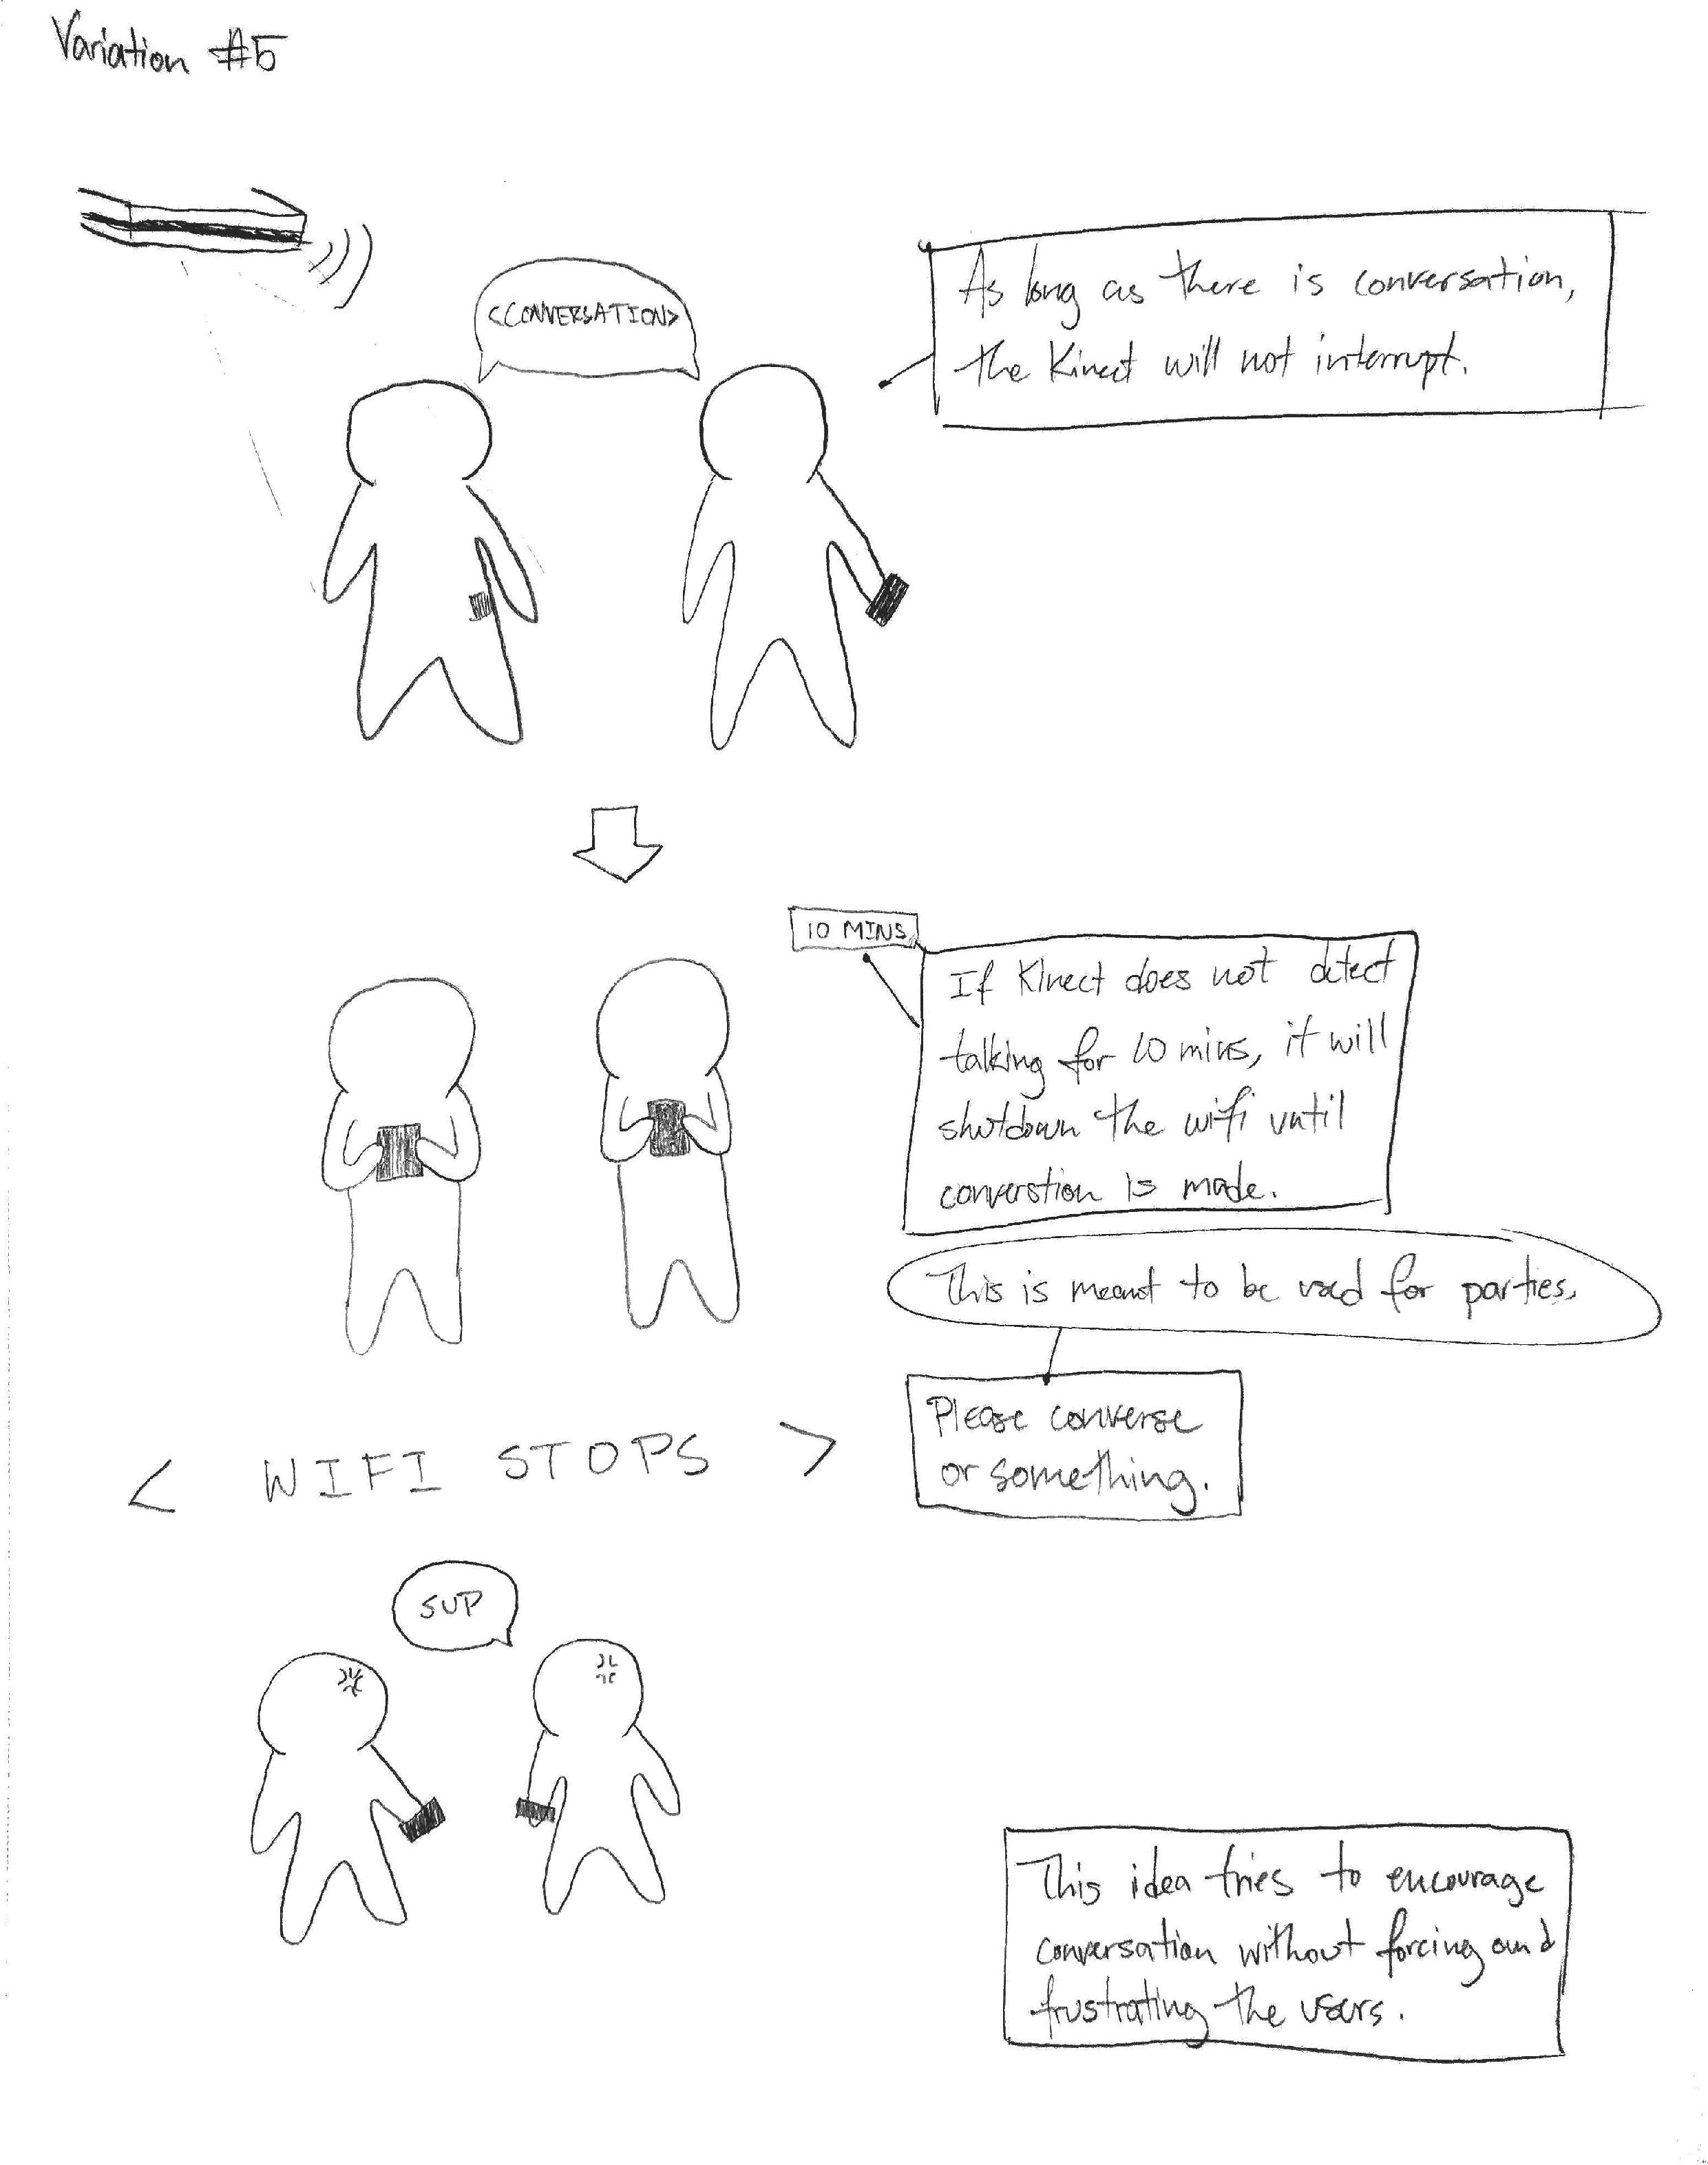 Variation #5
<CONVERSATION>
As long as there is conversation,
the Kinect will not interrupt.
10 MINS
If Kinect does not detect
talking for 10 mins, it will
shutdown the wifi until
converstion is made.
This is meant to be used for parties.
Please converse
or something.
< WIFI STOPS >
SUP
This idea tries to encourage
conversation without forcing and
frustrating the users.